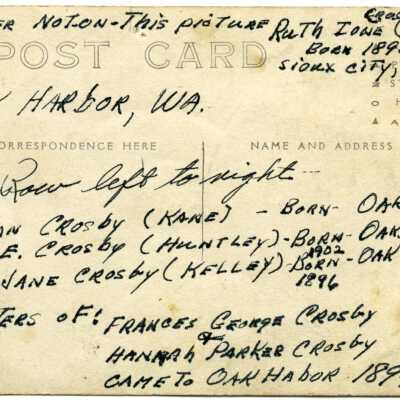 ER NOTON - THIS PICTURE
RUTH IONE (
BORN 189
SIOUX CITY,
POST CARD
HARBOR, WA.
CORRESPONDENCE HERE
NAME AND ADDRESS
Row left to right -
AN CROSBY (KANE) - BORN - OAK
E. CROSBY (HUNTLEY) - BORN - OAK
1902
JANE CROSBY (KELLEY) - BORN - OAK
1896
TERS OF: FRANCES GEORGE CROSBY
&
HANNAH PARKER CROSBY
CAME TO OAK HABOR 189